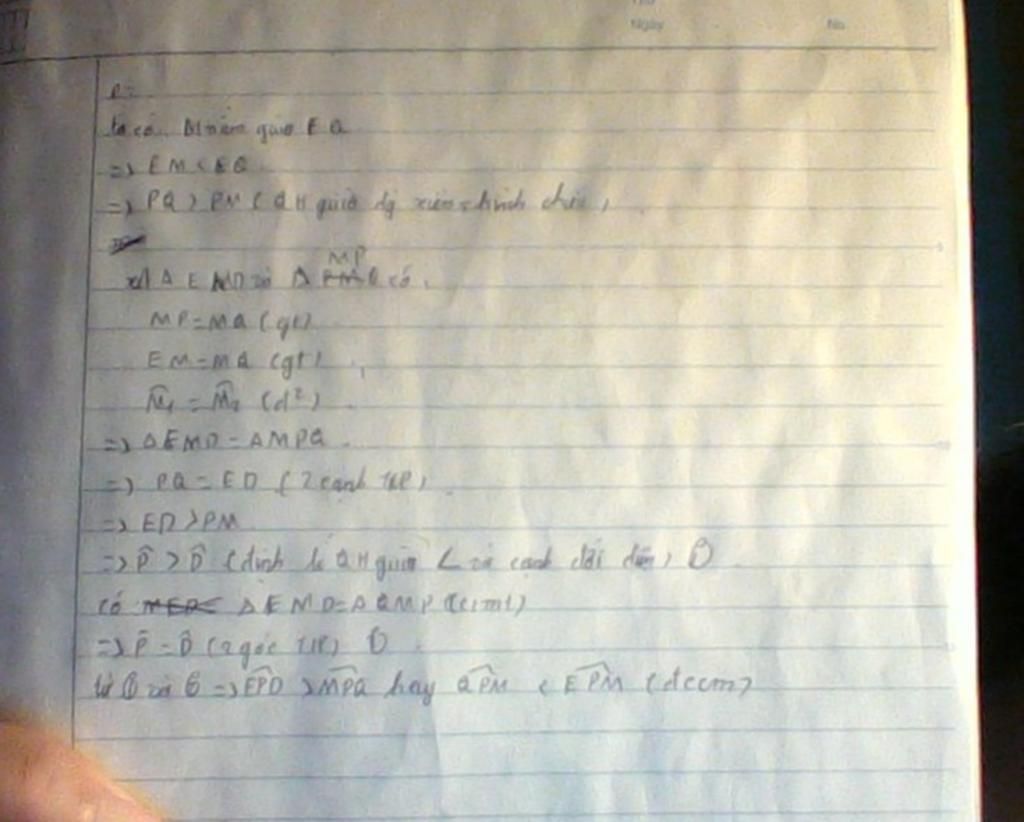 Ngày No
ta có M nằm giữa E Q
=> EM < EQ
=> PQ > PM (QH giữa đg xiên, hình chiếu)
MP
xét Δ EMD và Δ Q có
MP = MQ (gt)
EM = MQ (gt)
M̂1 = M̂2 (đ²)
=> ΔEMD = ΔMPQ
=> PQ = ED (2 cạnh TƯ)
=> ED > PM
=> P̂ > D̂ (định lí QH giữa ∠ và cạnh đối diện)
có ΔEMD = ΔQMP (cmt)
=> P̂ = D̂ (2 góc TƯ)
từ và => EPD > MPQ hay QPM < EPM (đccm)